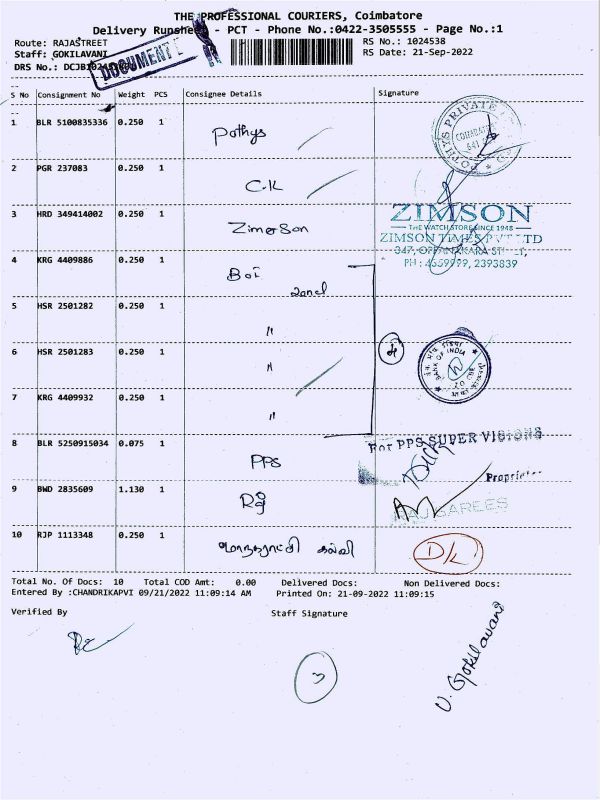 THE PROFESSIONAL COURIERS, Coimbatore
Delivery Runsheet - PCT - Phone No.:0422-3505555 - Page No.:1
Route: RAJASTREET
RS No.: 1024538
Staff: GOKILAVANI
RS Date: 21-Sep-2022
DRS No.:
DOCUMENT
S No Consignment No Weight PCS Consignee Details Signature
1 BLR 5100835336 0.250 1 Pothys
POTHYS PRIVATE
COIMBATORE
2 PGR 237083 0.250 1 C.K
3 HRD 349414002 0.250 1 Zimson
ZIMSON
THE WATCH STORE SINCE 1948
ZIMSON TIMES PVT LTD
347, OPPANAKARA ST
PH : 4559999, 2393839
4 KRG 4409886 0.250 1 BoI
zonel
5 HSR 2501282 0.250 1 "
6 HSR 2501283 0.250 1 "
BANK OF INDIA
7 KRG 4409932 0.250 1 "
8 BLR 5250915034 0.075 1 PPS
For PPS SUPER VISIONS
Proprietor
9 BWD 2835609 1.130 1 Raj
RAJ SAREES
10 RJP 1113348 0.250 1 மாநகராட்சி கல்வி D/L
Total No. Of Docs: 10 Total COD Amt: 0.00 Delivered Docs: Non Delivered Docs:
Entered By :CHANDRIKAPVI 09/21/2022 11:09:14 AM Printed On: 21-09-2022 11:09:15
Verified By Staff Signature
U. Gokilavani